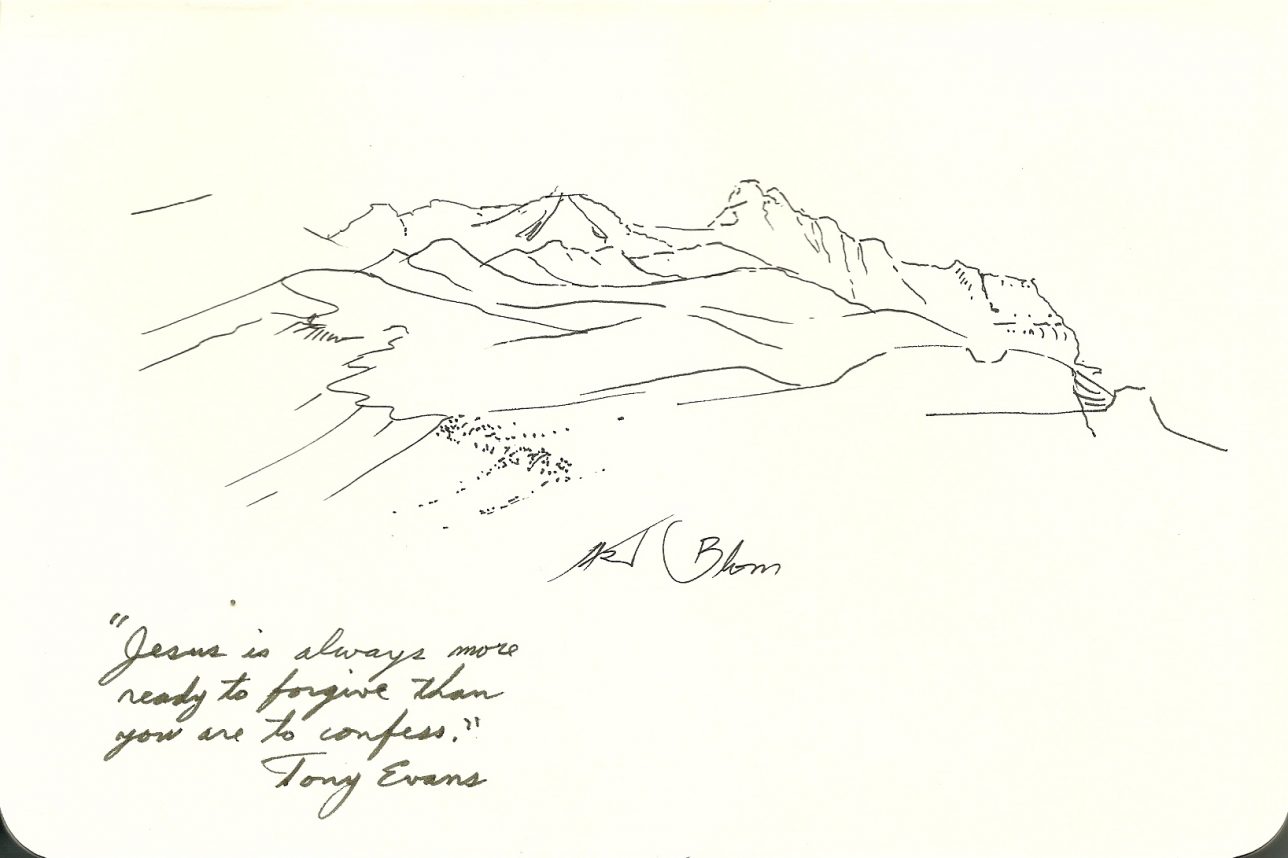 Art Blom
"Jesus is always more
ready to forgive than
you are to confess."
Tony Evans